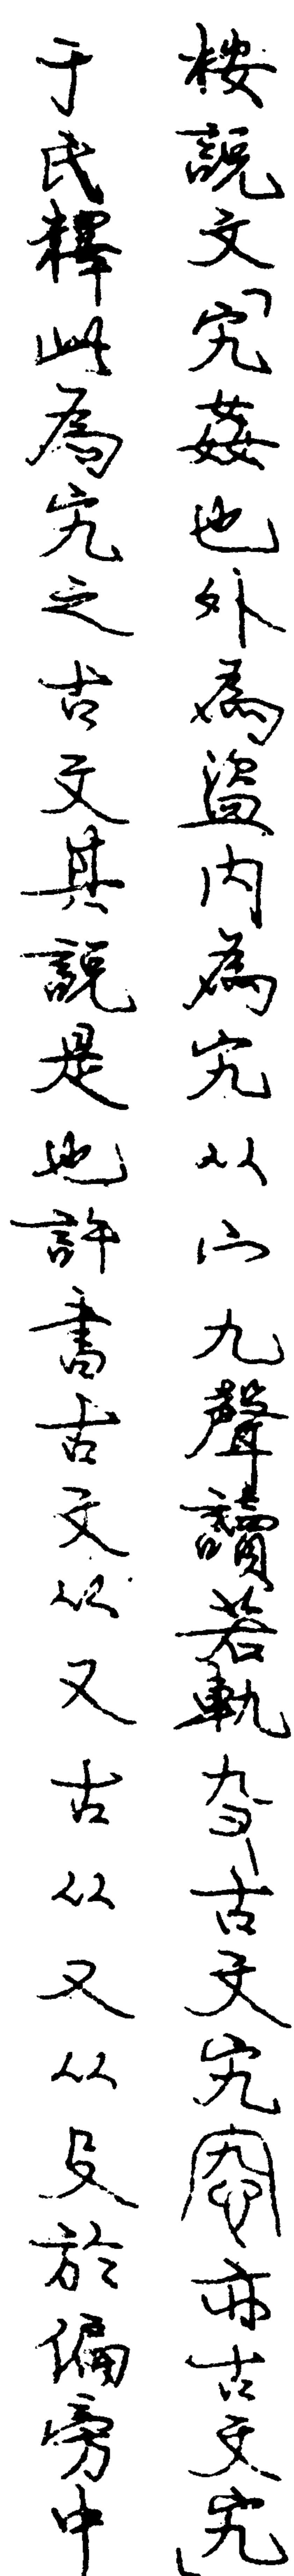 按說文「宄姦也外為盜内為宄从宀九聲讀若軌古文宄亦古文宄」
于氏釋此為宄之古文其說是也許書古文从又古从又从殳於偏旁中